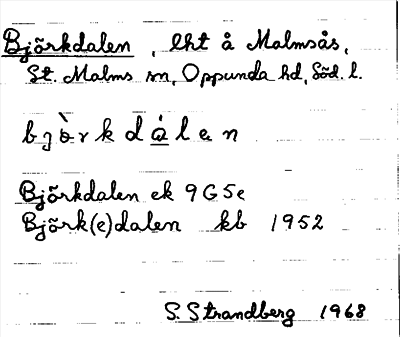 Björkdalen, lht å Malmsås,
St. Malms sn, Oppunda hd, Söd. l.
bjò̱rkdá̱len
Björkdalen ek 9G5e
Björk(e)dalen kb 1952
S. Strandberg 1968